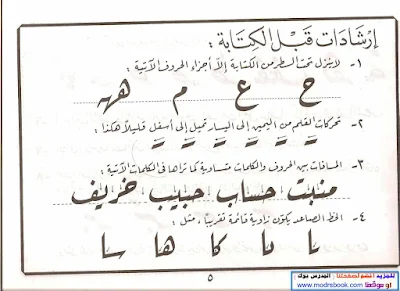 إرشادات قبل الكتابة :
١- لا ينزل تحت السطر من الكتابة إلا أجزاء الحروف الآتية :
ح ع م هه
٢- تحركات القلم من اليمين إلى اليسار تميل إلى أسفل قليلاً هكذا :
٣- المسافات بين الحروف والكلمات متساوية كما تراها في الكلمات الآتية :
منبت حساب حبيب خريف
٤- الخط الصاعد يكوّن زاوية قائمة تقريباً ، مثل :
با نا كا ها سا
٥
للمزيد انضم لصفحتنا : المدرس بوك
او موقعنا www.modrsbook.com